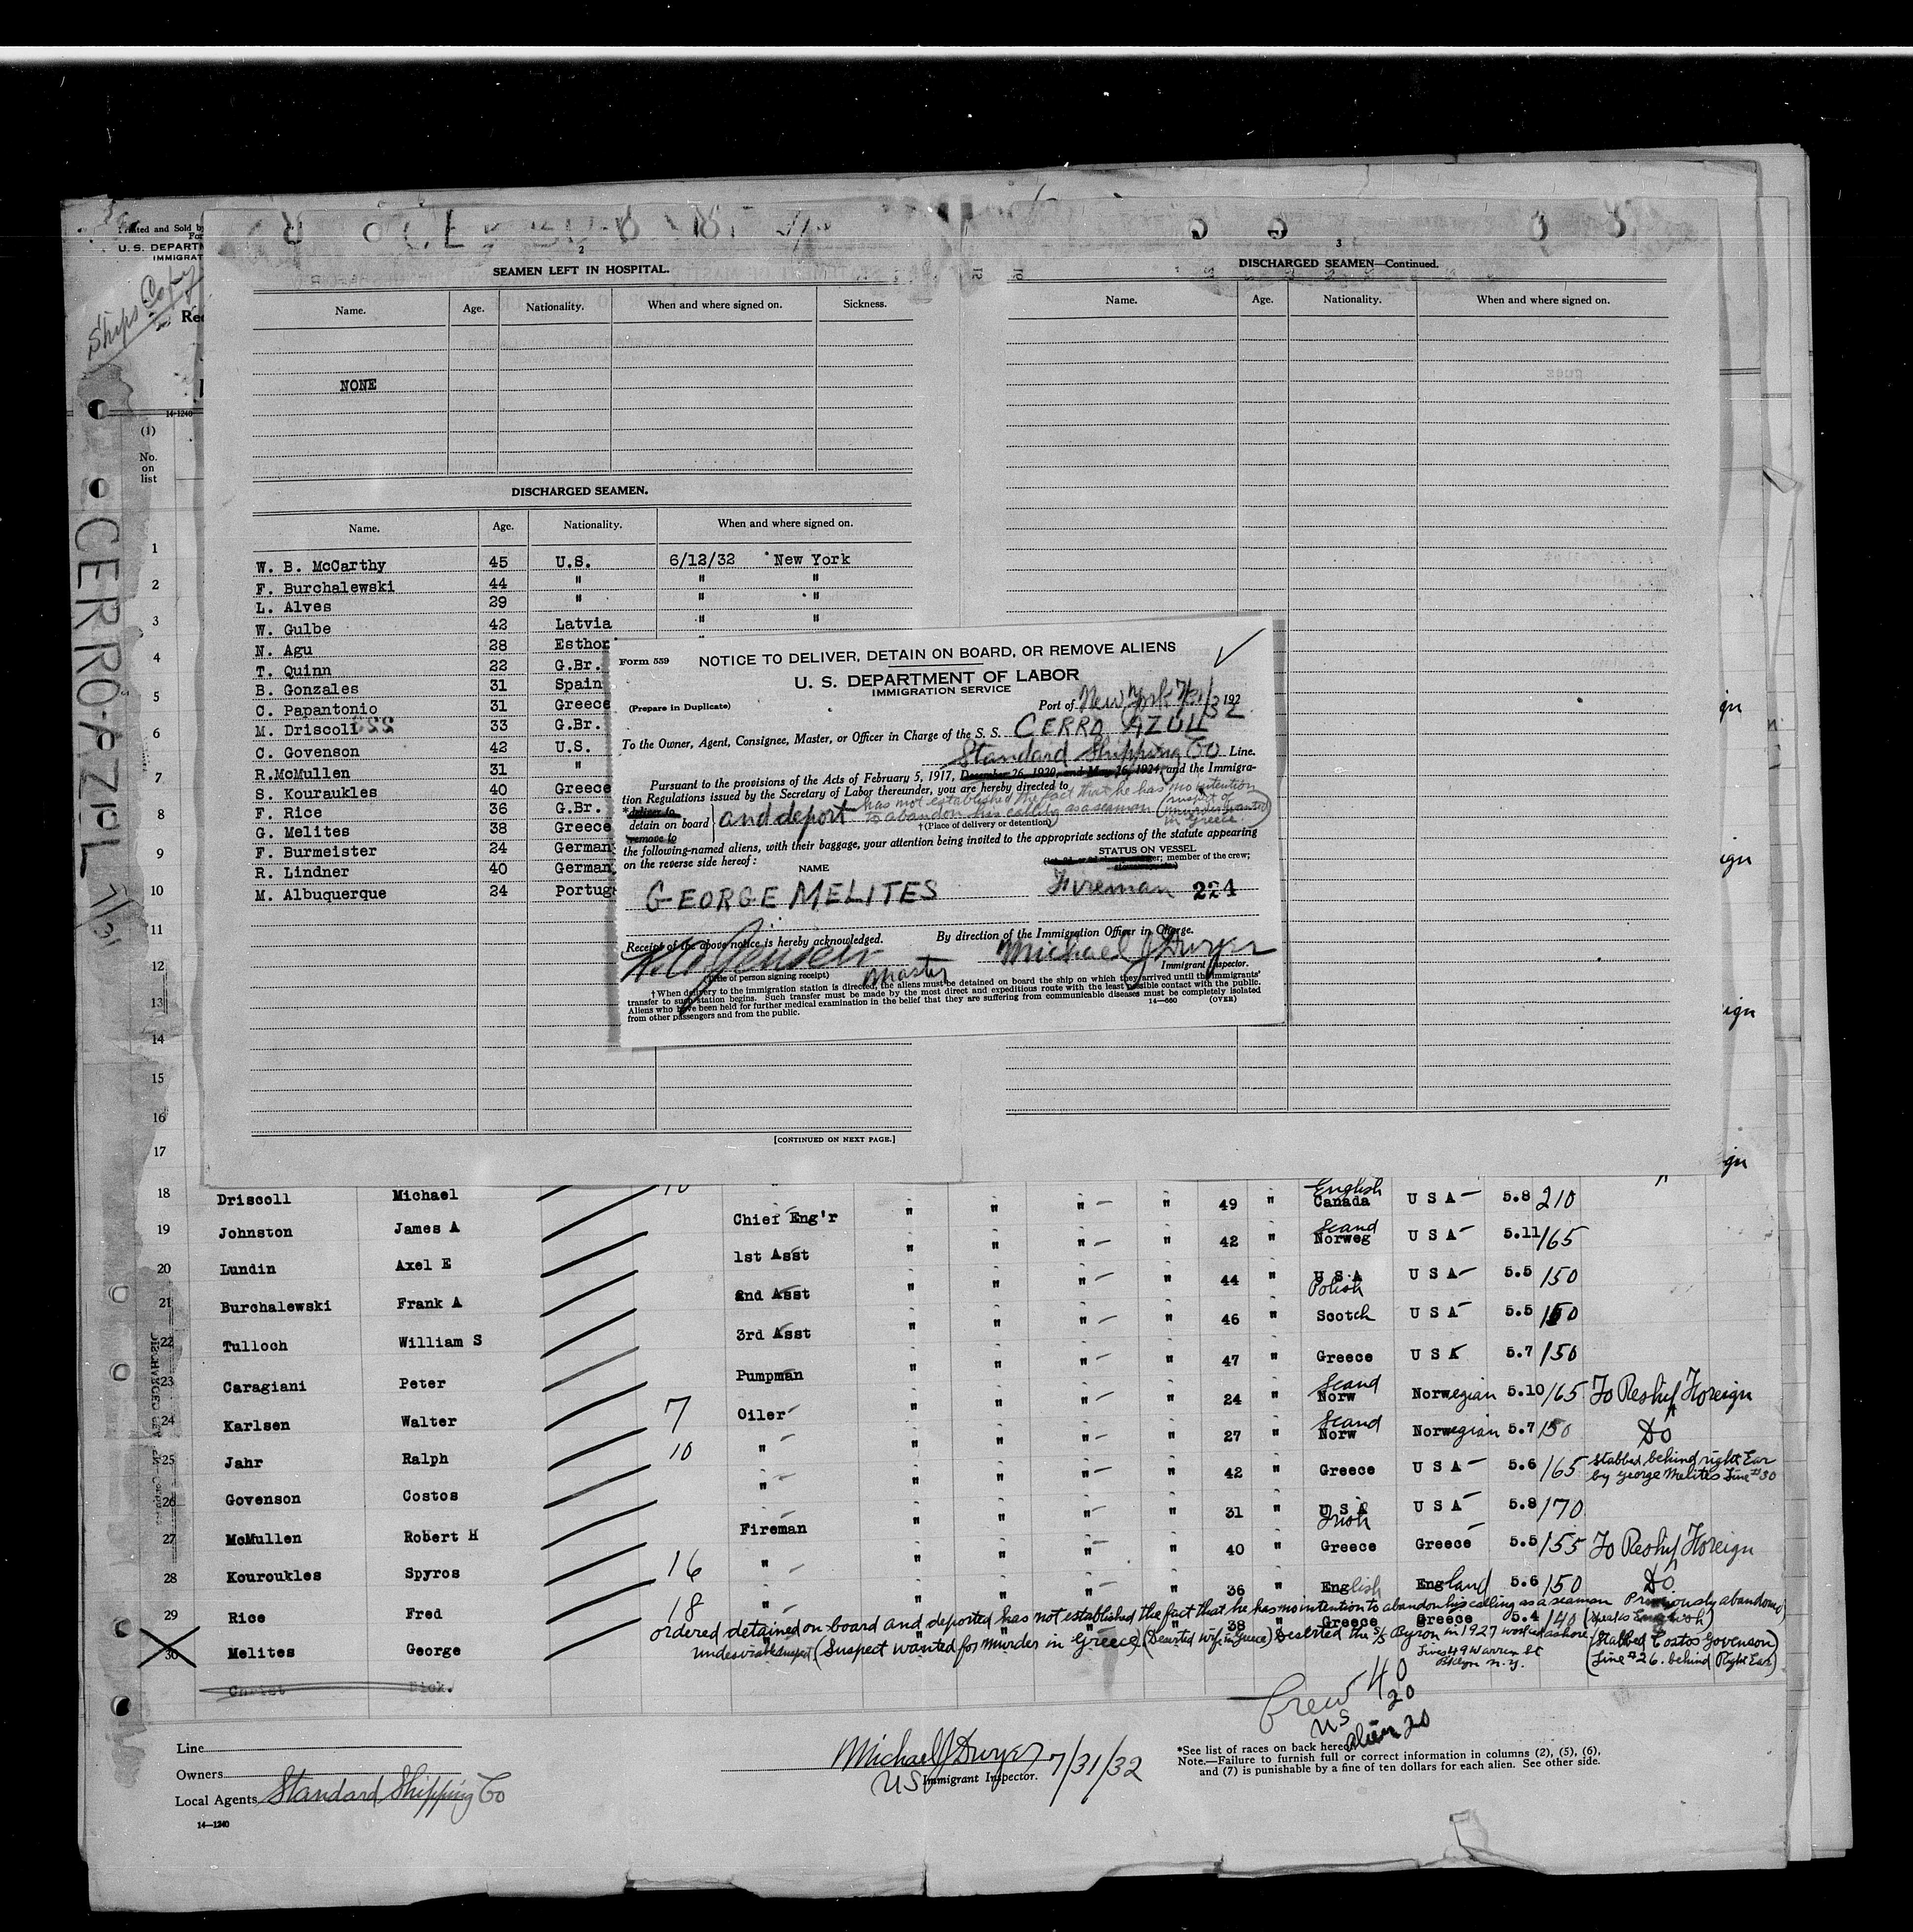 Printed and Sold b
U. S. DEPARTM
IMMIGRAT
Ships Copy
Rec
14-1240
(1)
No.
on
list
CERRO AZUL 7/31
2
SEAMEN LEFT IN HOSPITAL.
Name. Age. Nationality. When and where signed on. Sickness.
NONE
DISCHARGED SEAMEN.
Name. Age. Nationality. When and where signed on.
W. B. McCarthy 45 U.S. 6/12/32 New York
F. Burchalewski 44 " " "
L. Alves 29 " " "
W. Gulbe 42 Latvia " "
N. Agu 28 Esthor "
T. Quinn 22 G.Br.
B. Gonzales 31 Spain
C. Papantonio 31 Greece
M. Driscoll 33 G.Br.
C. Govenson 42 U.S.
R.McMullen 31 "
S. Kouraukles 40 Greece
F. Rice 36 G.Br.
G. Melites 38 Greece
F. Burmeister 24 German
R. Lindner 40 German
M. Albuquerque 24 Portug
[CONTINUED ON NEXT PAGE.]
3
DISCHARGED SEAMEN—Continued.
Name. Age. Nationality. When and where signed on.
Form 559
NOTICE TO DELIVER, DETAIN ON BOARD, OR REMOVE ALIENS
U. S. DEPARTMENT OF LABOR
IMMIGRATION SERVICE
(Prepare in Duplicate)
Port of New York 7/31/32 192
To the Owner, Agent, Consignee, Master, or Officer in Charge of the S. S. CERRO AZUL
Standard Shipping Co Line.
Pursuant to the provisions of the Acts of February 5, 1917, December 26, 1920, and May 26, 1924, and the Immigra-
tion Regulations issued by the Secretary of Labor thereunder, you are hereby directed to
has not established the fact that he has no intention
*deliver to
detain on board and deport to abandon his calling as a seaman (suspect of murder wanted in Greece.)
remove to
†(Place of delivery or detention)
the following-named aliens, with their baggage, your attention being invited to the appropriate sections of the statute appearing
on the reverse side hereof:
STATUS ON VESSEL
member of the crew;
NAME
GEORGE MELITES Fireman 224
Receipt of the above notice is hereby acknowledged.
By direction of the Immigration Officer in Charge.
Michael J Dwyer
Immigrant Inspector.
Master
(Title of person signing receipt)
†When delivery to the immigration station is directed, the aliens must be detained on board the ship on which they arrived until the immigrants'
transfer to such station begins. Such transfer must be made by the most direct and expeditious route with the least possible contact with the public.
Aliens who have been held for further medical examination in the belief that they are suffering from communicable diseases must be completely isolated
from other passengers and from the public.
14—660 (OVER)
1
2
3
4
5
6
7
8
9
10
11
12
13
14
15
16
17
18 Driscoll Michael 10
19 Johnston James A Chief Eng'r " " " " 49 " English Canada U S A 5.8 210
20 Lundin Axel E 1st Asst " " " " 42 " Scand Norweg U S A 5.11 165
21 Burchalewski Frank A 2nd Asst " " " " 44 " U S A Polish U S A 5.5 150
22 Tulloch William S 3rd Asst " " " " 46 " Scotch U S A 5.5 150
23 Caragiani Peter Pumpman " " " " 47 " Greece U S A 5.7 150
24 Karlsen Walter 7 Oiler " " " " 24 " Scand Norw Norwegian 5.10 165 To Reship Foreign
25 Jahr Ralph 10 " " " " " 27 " Scand Norw Norwegian 5.7 150 Do
26 Govenson Costos " " " " " 42 " Greece U S A 5.6 165 Stabbed behind right Ear by George Melites Line #30
27 McMullen Robert H Fireman " " " " 31 " U S A Irish U S A 5.8 170
28 Kouroukles Spyros 16 " " " " " 40 " Greece Greece 5.5 155 To Reship Foreign
29 Rice Fred 18 " " " " " 36 " English England 5.6 150 Do
ordered detained on board and deported has not established the fact that he has no intention to abandon his calling as a seaman Previously abandoned
30 Melites George " " " " " 38 " Greece Greece 5.4 140 (Speaks English)
undesirable suspect (Suspect wanted for murder in Greece) (Deserted wife in Greece) Deserted the S/S Byron in 1927 worked ashore (Stabbed Costos Govenson
Lives 49 Warren St Bklyn n.y. Line #26. behind Right Ear)
Christ Nick.
Crew 40
US 20
alien 20
Line
Owners
Local Agents Standard Shipping Co
14—1240
Michael J Dwyer 7/31/32
US Immigrant Inspector.
*See list of races on back hereof
Note.—Failure to furnish full or correct information in columns (2), (5), (6),
and (7) is punishable by a fine of ten dollars for each alien. See other side.